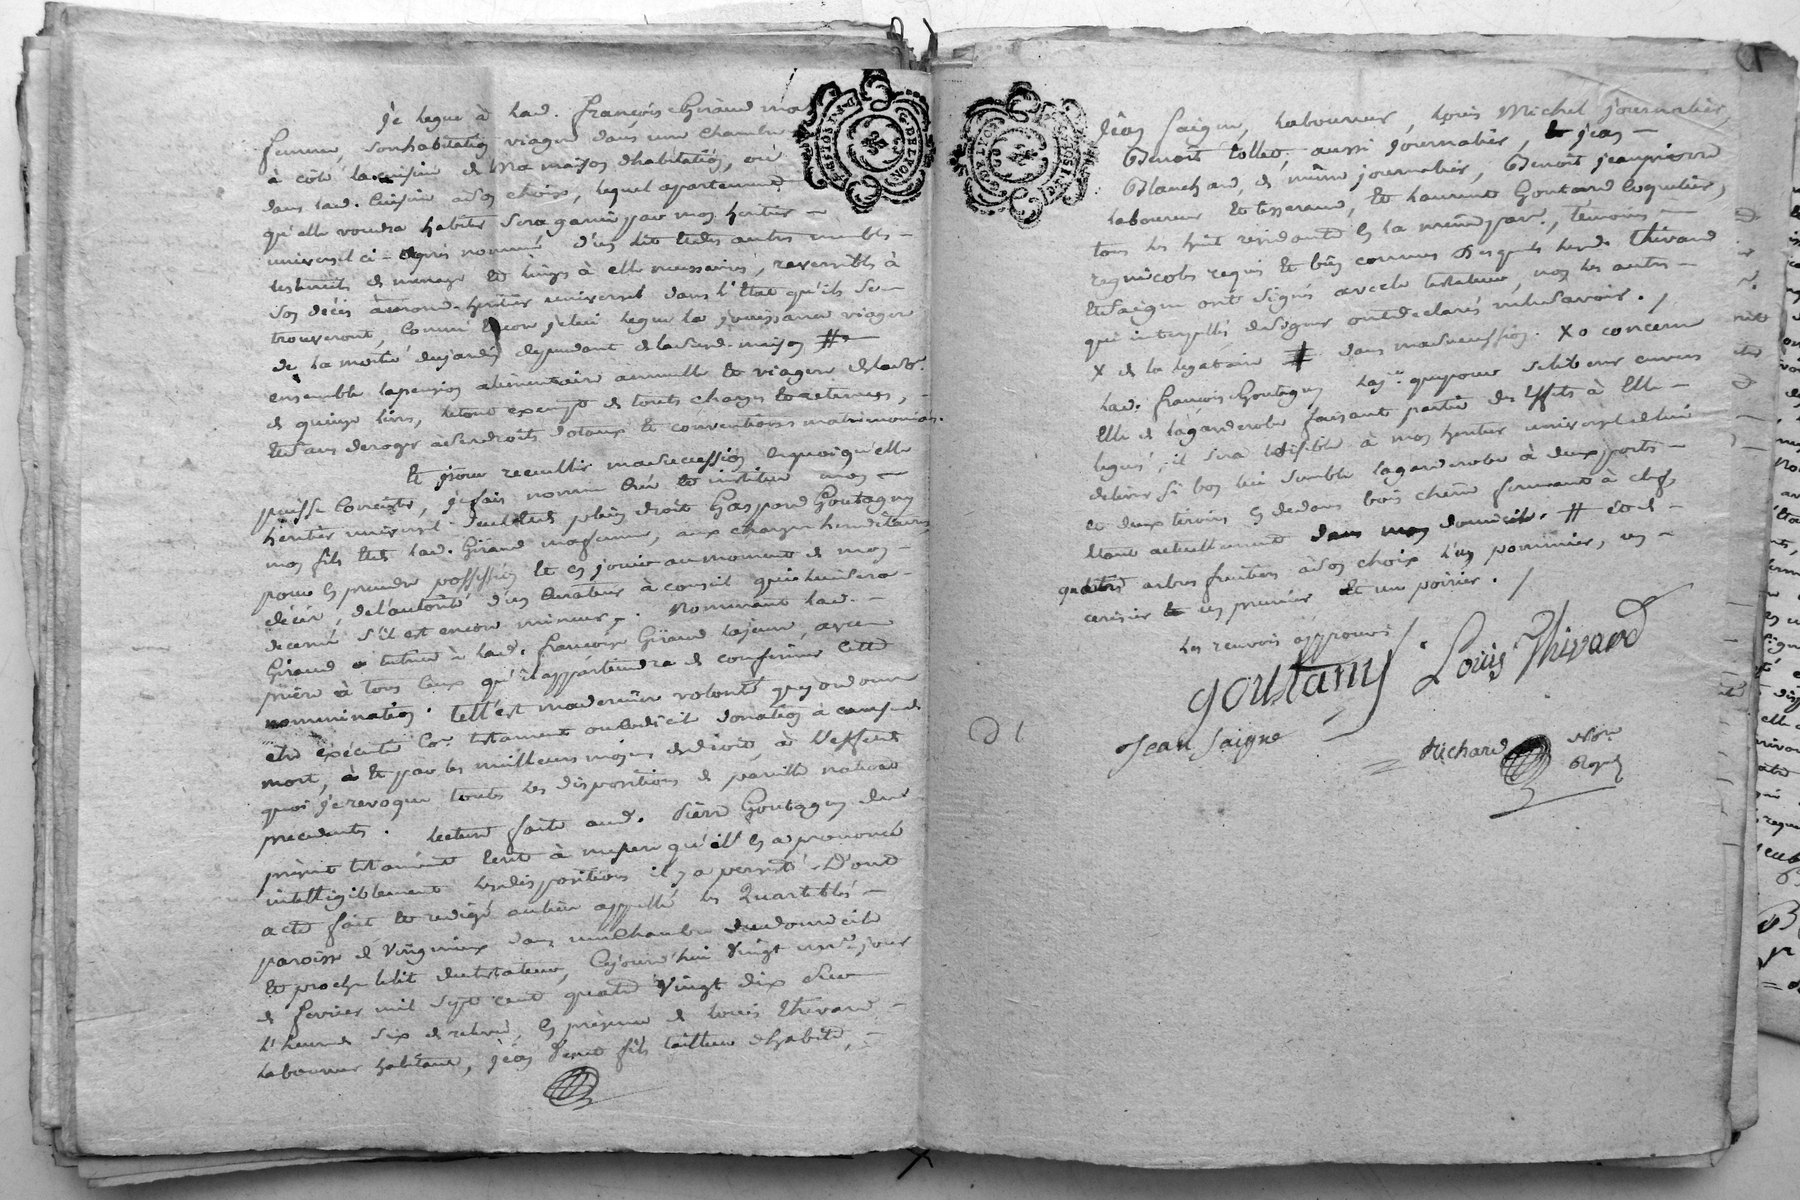 Je legue à lad. françoise Giraud ma
femme, son habitation viagere dans une chambre
à côté la cuisine de Ma maison d'habitation, où
dans lad. Cuisine à son choix, lequel apartement
qu'elle voudra habiter sera garni par mon heritier
universel ci-après nommé d'un lit et des autres meubles
ustensils de menage et linges à elle necessaires, reversibles à
son décès à mond. heritier universel dans l'Etat qu'ils se
trouveront, comme encore je lui legue la jouissance viagere
de la moitié du jardin dependant de la susd. maison #
ensemble la pension alimentaire annuelle et viagere de
de quinze livres, le tout exempt de toutes charges et retenues,
et sans deroger a ses droits dotaux et conventions matrimoniales.
Et pour recueillir ma succession en quoi qu'elle
puisse Consister, j'ai fait nommé Créé et institué mon
heritier universel seul et de plein droit Gaspard Goutagny
mon fils et de lad. Giraud ma femme, aux charges hereditaires
pour en prendre possession et en jouir au moment de mon
décès, de l'autorité d'un Curateur à conseil qui lui sera
decerné s'il est encore mineur. Nommant lad.
Giraud tutrice à lad. françoise Giraud la jeune, avec
prière à tous ceux qu'il appartiendra de confirmer cette
nommination. Tell'est ma derniere volonté que j'ordonne
etre executée par testament ou codicil donation à cause de
mort, à et par les meilleurs moyens de droit, à l'effet de
quoi je revoque toutes les dispositions de pareille nature
precedentes. Lecture faite aud. Pierre Goutagny du
present testament ecrit à mesure qu'il en a prononcé
intelligiblement les dispositions il y a persisté. Dont
acte fait et redigé au lieu appellé les Quartelés
paroisse de Virigneux dans une Chambre du domicile
et proche le lit du testateur, Cejourd'hui Vingt un.e jour
de fevrier mil sept cent quatre vingt dix sur
l'heure de six de relevée, en présence de Louis Thivard
laboureur habitant, jean fils tailleur d'habits,
Jean Saigne, Laboureur, Louis Michel journalier
Benoit Collet, aussi journalier, jean
Blanchard, de même journalier, Benoit jeanpierre
laboureur et tisserand, et Laurent Goutard Coquetier,
tous les huit residants en la même par., temoins
regnicoles requis et bien connus Desquels lesd. Thivard
et Saigne ont signés avec le testateur, non les autres
qui interpellés de signer ont déclarés ne le savoir. /
X de la legataire # dans ma succession. X o concerne
lad. françoise Goutagny
Elle de la garderobe faisant partie des effets à Elle
legués, il sera loisible à mon heritier universel de lui
delivrer si bon lui semble la garderobe à deux portes
et deux tiroirs en dedans bois chêne fermant à clef,
étant actuellement dans mon domicile. # et de
quatre arbres fruitiers à son choix l'un pommier, un
cerisier un prunier et un poirier. /
Les renvois approuvés /
goutany Louis Thivard
Jean Saigne
Richard Not.re
Royal